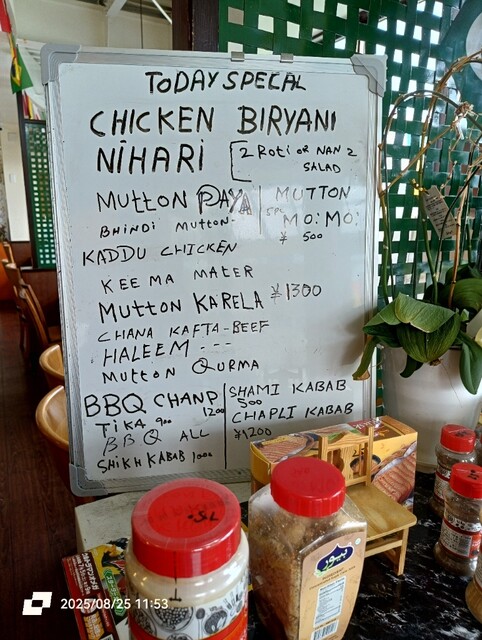 TODAY SPECAL
CHICKEN BIRYANI
NIHARI [2 ROTI OR NAN 2
SALAD
MUTTON PAYA
BHINDI MUTTON-
KADDU CHICKEN
KEEMA MATER
MUTTON KARELA ¥1300
CHANA KAFTA-BEEF
HALEEM ---
MUTTON QURMA
MUTTON
MO:MO:
¥ 500
BBQ CHANP
1200
TIKA 900
BBQ ALL
SHIKH KABAB 1000
SHAMI KABAB
500
CHAPLI KABAB
¥1200
2025/08/25 11:53